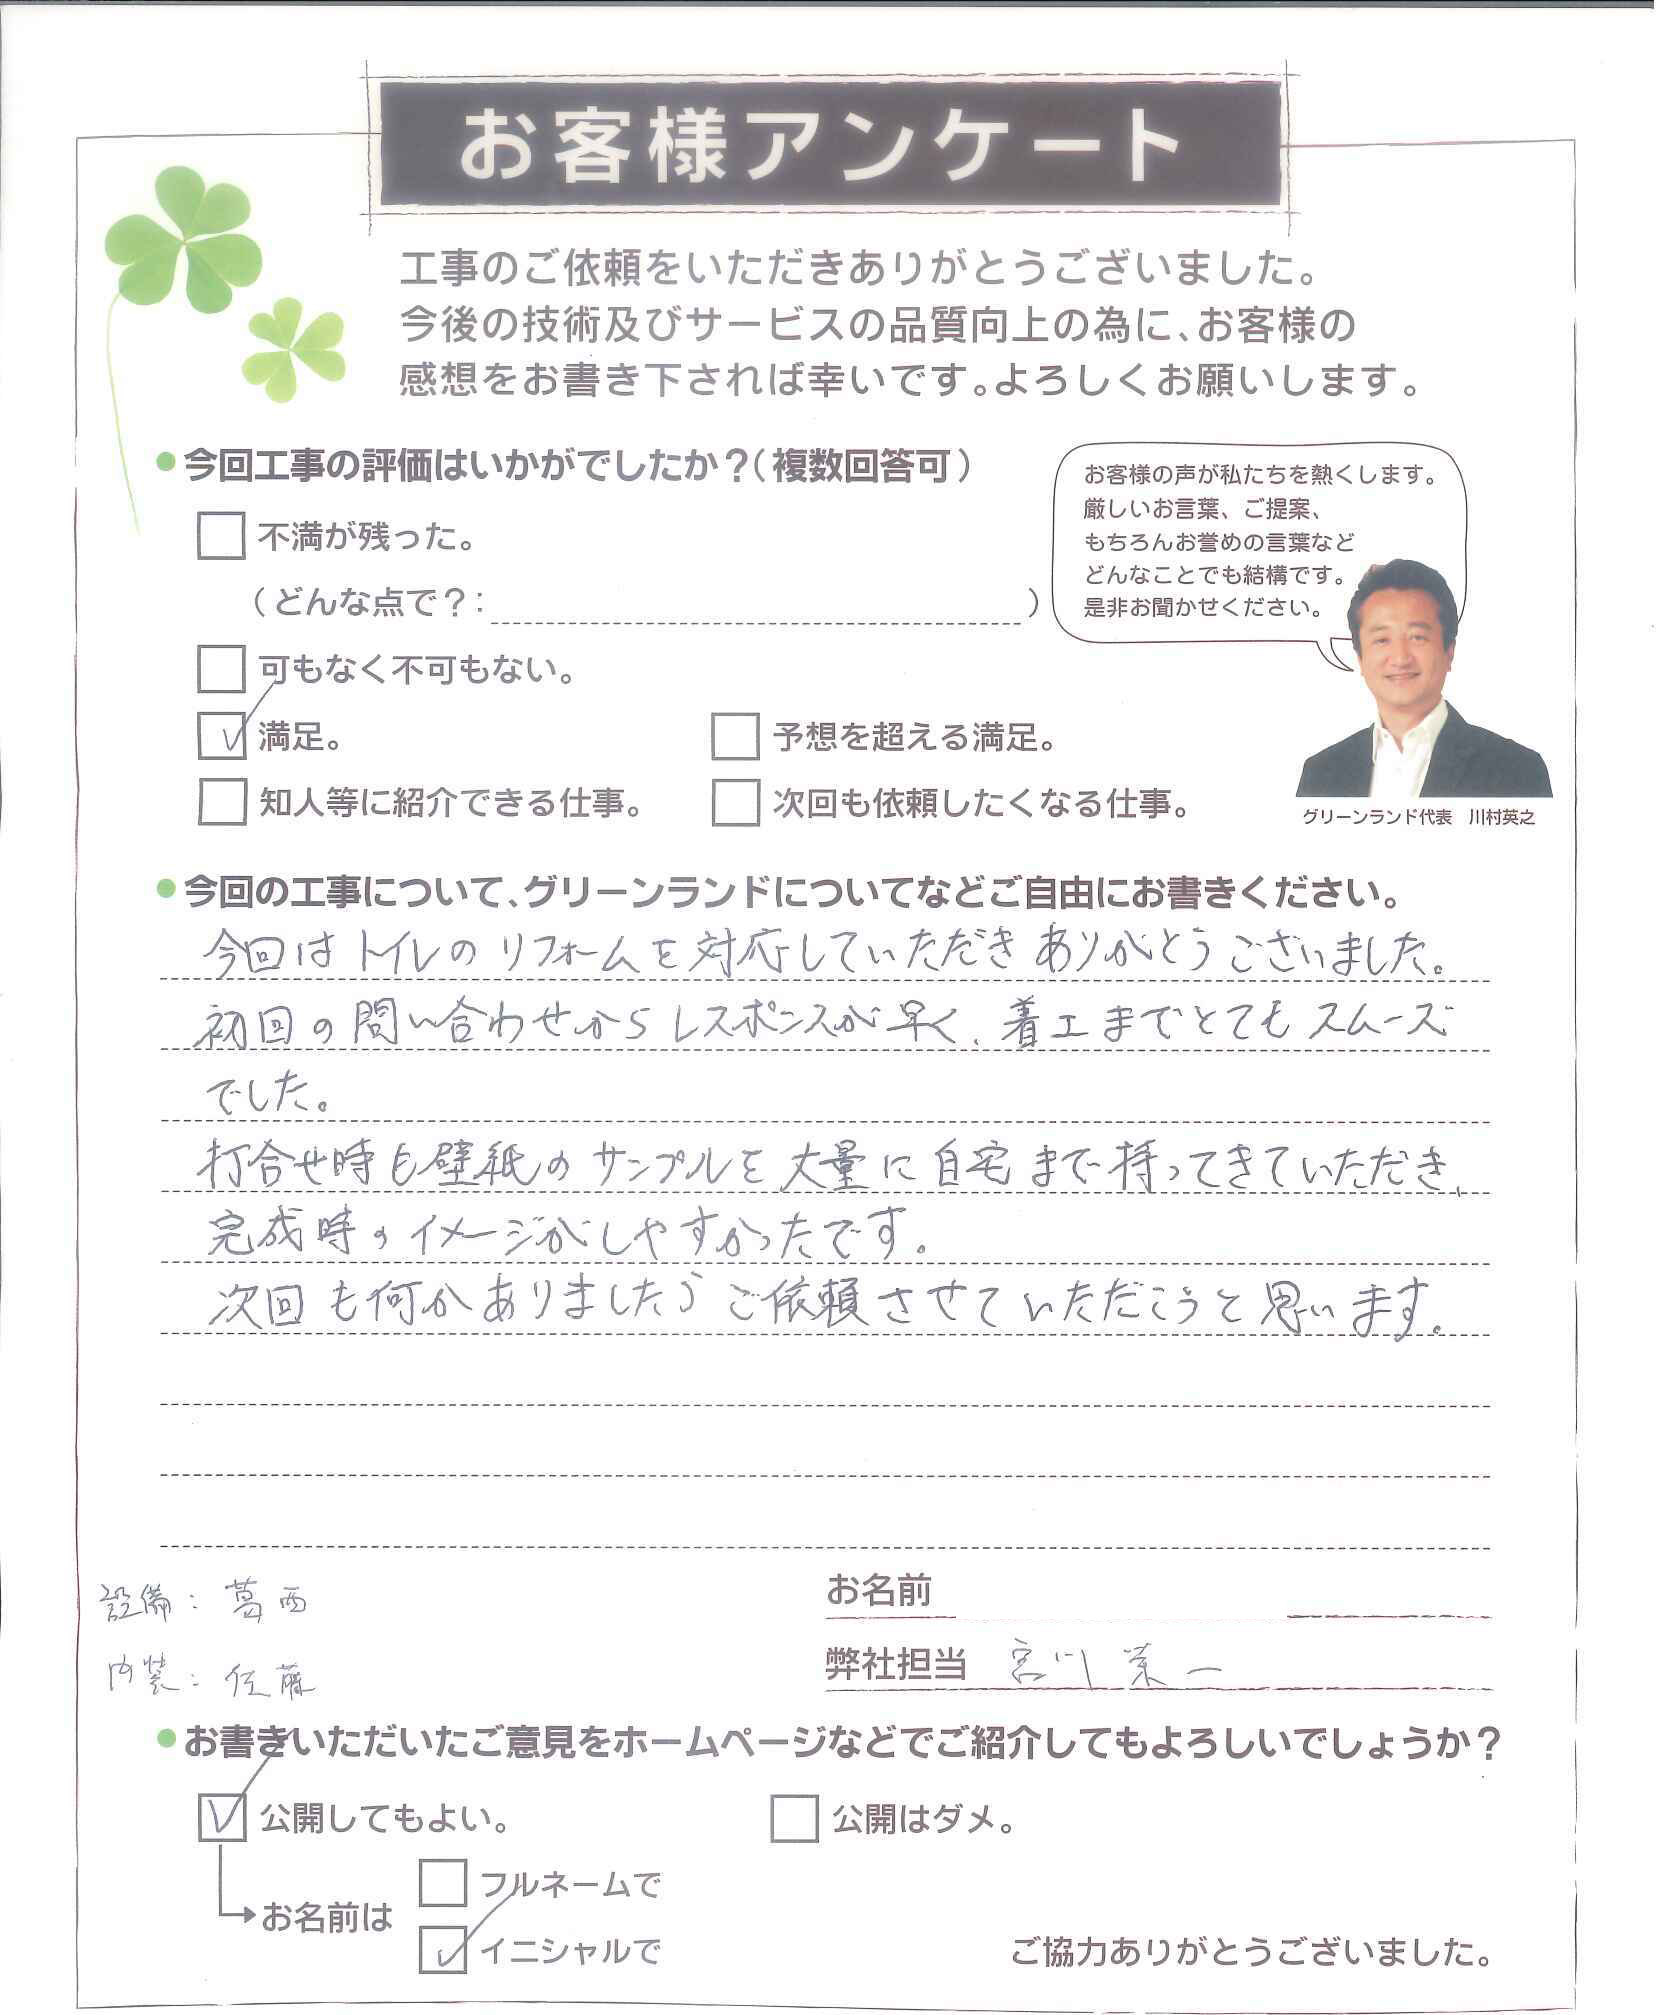 お客様アンケート
工事のご依頼をいただきありがとうございました。
今後の技術及びサービスの品質向上の為に、お客様の
感想をお書き下されば幸いです。よろしくお願いします。
今回工事の評価はいかがでしたか？（複数回答可）
不満が残った。
（どんな点で？：　）
可もなく不可もない。
満足。
予想を超える満足。
知人等に紹介できる仕事。
次回も依頼したくなる仕事。
お客様の声が私たちを熱くします。
厳しいお言葉、ご提案、
もちろんお誉めの言葉など
どんなことでも結構です。
是非お聞かせください。
グリーンランド代表　川村英之
今回の工事について、グリーンランドについてなどご自由にお書きください。
今回はトイレのリフォームを対応していただきありがとうございました。
初回の問い合わせからレスポンスが早く、着工までとてもスムーズ
でした。
打合せ時も壁紙のサンプルを大量に自宅まで持ってきていただき、
完成時のイメージがしやすかったです。
次回も何かありましたらご依頼させていただこうと思います。
設備：葛西
内装：佐藤
お名前
弊社担当　宮川栄一
お書きいただいたご意見をホームページなどでご紹介してもよろしいでしょうか？
公開してもよい。
公開はダメ。
お名前は
フルネームで
イニシャルで
ご協力ありがとうございました。